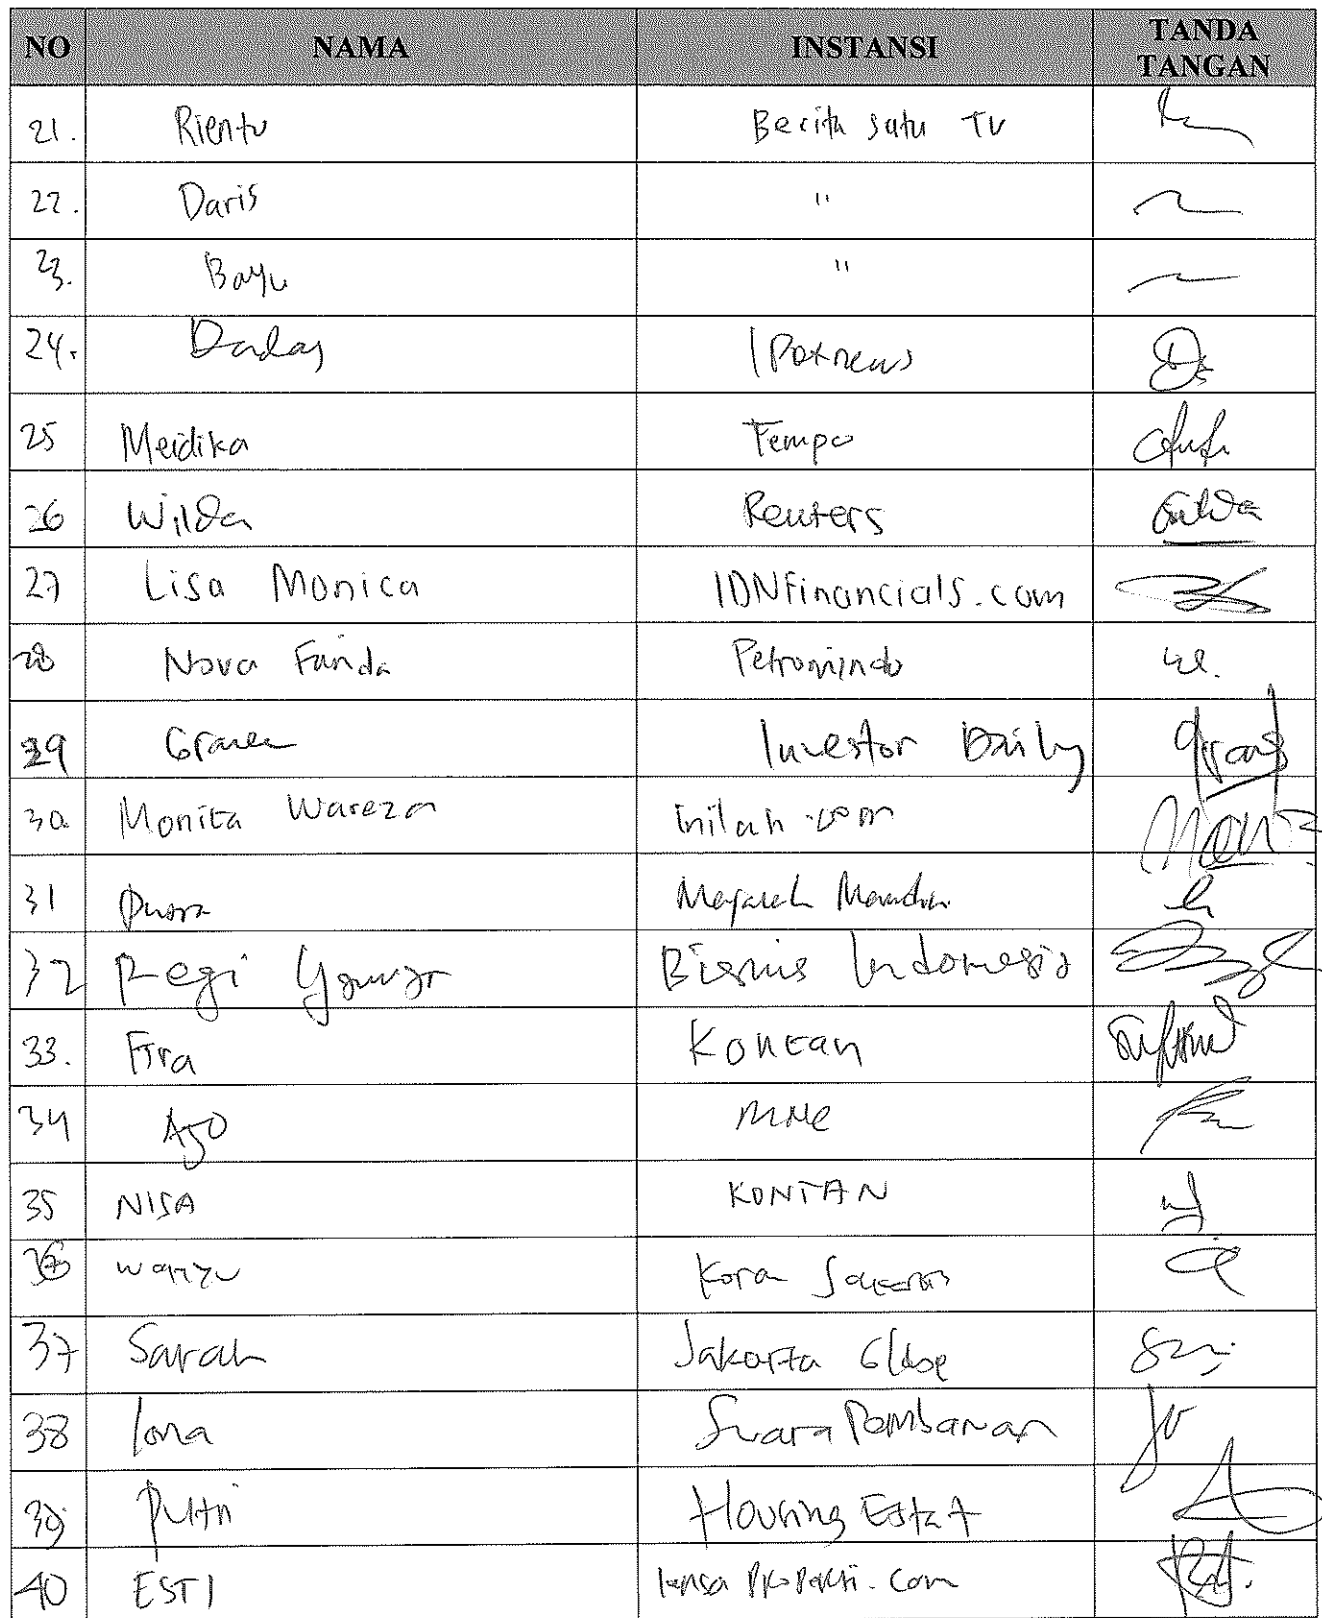 NO NAMA INSTANSI TANDA TANGAN
21. Rientu Berita satu TV
22. Daris "
23. Bayu "
24. Ipotnews
25 Meidika Tempo
26 Wilda Reuters
27 Lisa Monica IDNFinancials.com
28 Nova Farida Petromindo
29 Investor Daily
30. Monita Wareza inilah.com
31
32 Regi Yanuar Bisnis Indonesia
33. Fira Kontan
34 MNC
35 NISA KONTAN
36 Koran
37 Sarah Jakarta Globe
38 Iona Suara Pembaruan
39 Putri Housing Estat
40 ESTI lensa Properti.com